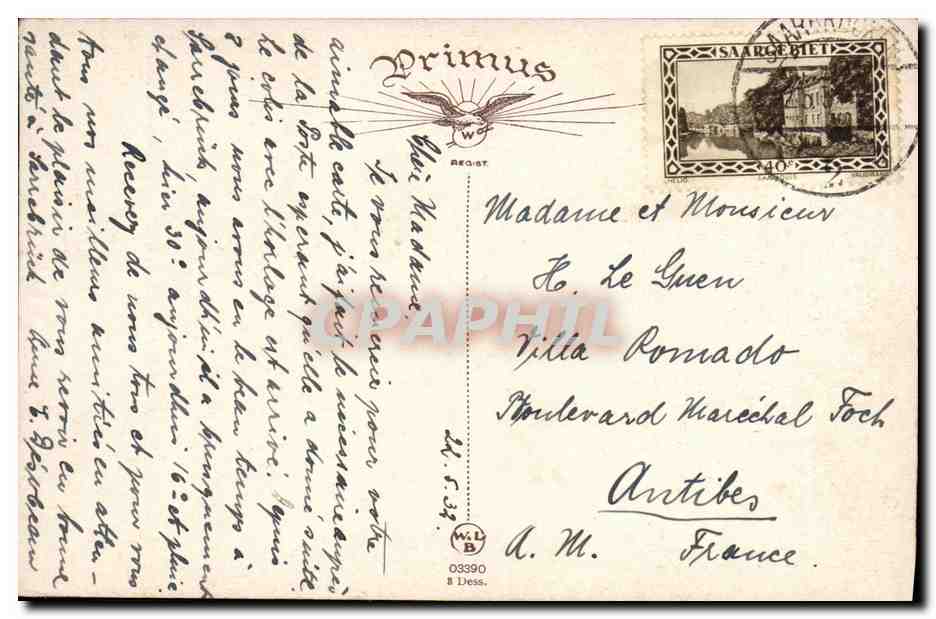 Primus
W
REGIST.
SAARGEBIET
40
Chère Madame,
Je vous remercie pour votre
aimable carte, j'ai fait le nécessaire auprès
de la Poste espérant qu'elle a donné suite
le colis avec l'horloge est arrivé. Depuis
8 jours nous avons eu le beau temps à
Sarrebrück, aujourd'hui il a brusquement
changé, hier 30° aujourdhui 16° et pluie
Recevez de nous tous et pour vous
tous nos meilleurs amitiés en atten-
dant le plaisir de vous revoir en bonne
santé à Sarrebrück
24.5.32.
Madame et Monsieur
H. Le Guen
Villa Romado
Boulevard Maréchal Foch
Antibes
A. M. France.
W.L
B
03390
8 Dess.
CPAPHIL